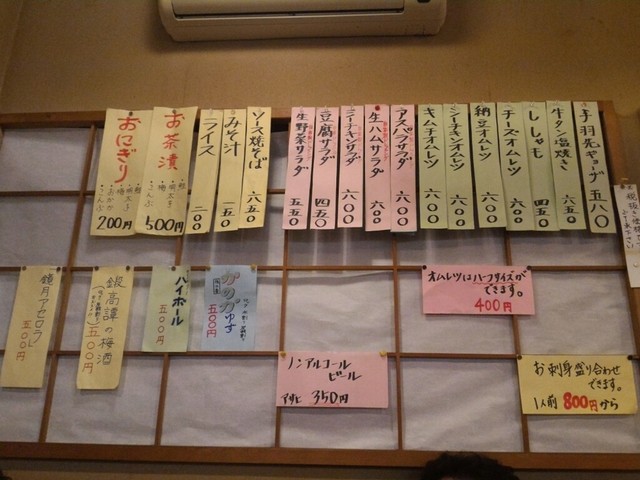 手羽先ギョーザ 五八〇
牛タン塩焼き 六五〇
ししゃも 四五〇
チーズオムレツ 六〇〇
納豆オムレツ 六〇〇
シーチキンオムレツ 六〇〇
キムチオムレツ 六〇〇
アスパラサラダ 六〇〇
生ハムサラダ 六〇〇
シーチキンサラダ 六〇〇
豆腐サラダ 四五〇
生野菜サラダ 五五〇
ソース焼そば 六五〇
みそ汁 一五〇
ライス 二〇〇
お茶漬
・鮭
・明太子
・梅
・こんぶ
500円
おにぎり
・鮭
・明太子
・梅
・おかか
・こんぶ
200円
オムレツはハーフサイズが
できます。
400円
お刺身盛り合わせ
できます。
1人前 800円から
ノンアルコール
ビール
アサヒ 350円
ゆず
五〇〇円
ハイボール
五〇〇円
銀高譚の梅酒
五〇〇円
鏡月アセロラ
五〇〇円